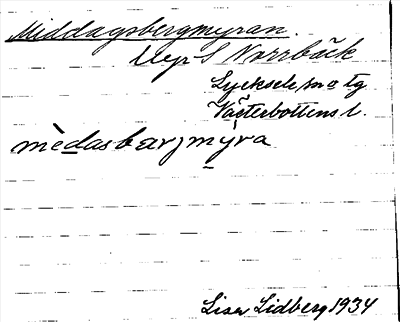 Middagsbergmyran.
Uyr S Norrbäck
Lycksele sn o tg
Västerbottens l.
mèdasbærjmýra
Lisa Lidberg 1934